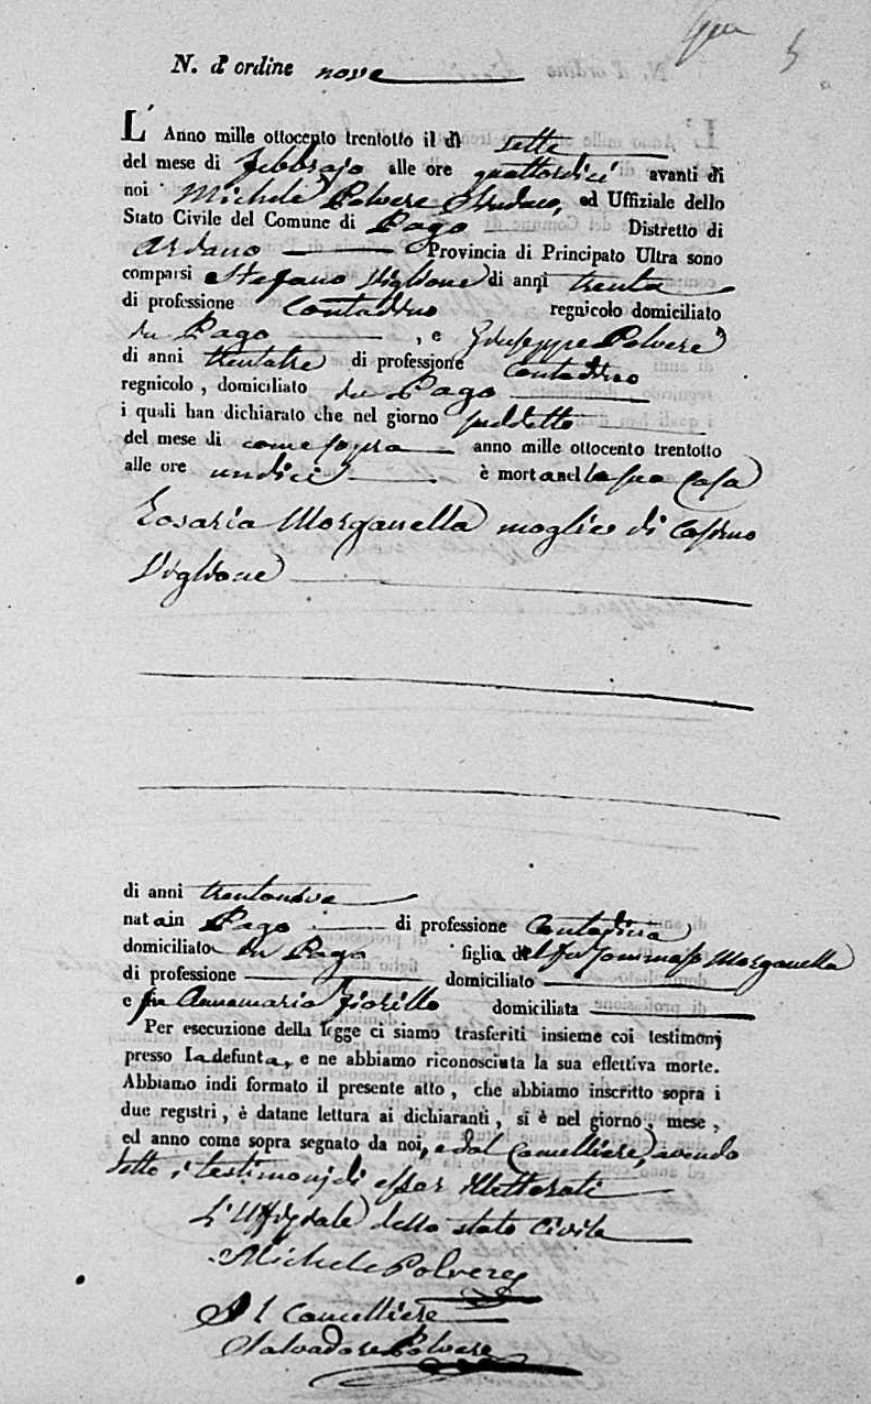 5
N. d'ordine nove
L'Anno mille ottocento trentotto il dì sette
del mese di Febbrajo alle ore quattordici avanti di
noi Michele Polvere Sindaco, ed Uffiziale dello
Stato Civile del Comune di Pago Distretto di
Ariano Provincia di Principato Ultra sono
comparsi Stefano Viglione di anni trenta
di professione Contadino regnicolo domiciliato
in Pago , e Giuseppe Polvere
di anni trentatre di professione Contadino
regnicolo , domiciliato in Pago
i quali han dichiarato che nel giorno suddetto
del mese di come sopra anno mille ottocento trentotto
alle ore undici è morta nella sua Casa
Rosaria Morganella moglie di Cosimo
Viglione
di anni trentanove
nata in Pago di professione Contadina
domiciliato in Pago figlia del fu Tommaso Morganella
di professione domiciliato
e fu Annamaria Fiorillo domiciliata
Per esecuzione della legge ci siamo trasferiti insieme coi testimonj
presso la defunta, e ne abbiamo riconosciuta la sua effettiva morte.
Abbiamo indi formato il presente atto , che abbiamo inscritto sopra i
due registri , è datane lettura ai dichiaranti , si è nel giorno , mese ,
ed anno come sopra segnato da noi, e dal Cancelliere, avendo
detto i testimonj di esser illetterati
L'Uffiziale dello stato Civile
Michele Polvere
Il Cancelliere
Salvadore Polvere